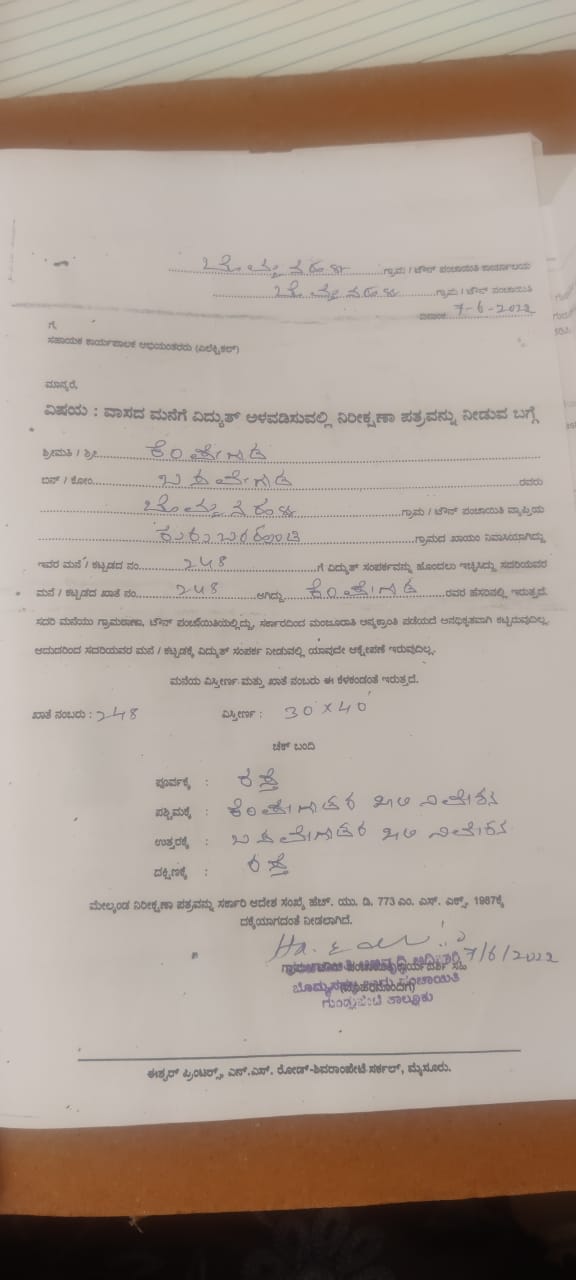 ಬೊಮ್ಮನಹಳ್ಳಿ ಗ್ರಾಮ / ಟೌನ್ ಪಂಚಾಯಿತಿ ಕಾರ್ಯಾಲಯ
ಬೊಮ್ಮನಹಳ್ಳಿ ಗ್ರಾಮ / ಟೌನ್ ಪಂಚಾಯಿತಿ
ದಿನಾಂಕ 7-6-2022
ಗೆ,
ಸಹಾಯಕ ಕಾರ್ಯಪಾಲಕ ಅಭಿಯಂತರರು (ಎಲೆಕ್ಟ್ರಿಕಲ್)
ಮಾನ್ಯರೆ,
ವಿಷಯ : ವಾಸದ ಮನೆಗೆ ವಿದ್ಯುತ್ ಅಳವಡಿಸುವಲ್ಲಿ ನಿರೀಕ್ಷಣಾ ಪತ್ರವನ್ನು ನೀಡುವ ಬಗ್ಗೆ
ಶ್ರೀಮತಿ / ಶ್ರೀ
ಬಿನ್ / ಕೋಂ ರವರು
ಬೊಮ್ಮನಹಳ್ಳಿ ಗ್ರಾಮ / ಟೌನ್ ಪಂಚಾಯಿತಿ ವ್ಯಾಪ್ತಿಯ
ಕುರುಬರಹುಂಡಿ ಗ್ರಾಮದ ಖಾಯಂ ನಿವಾಸಿಯಾಗಿದ್ದು
ಇವರ ಮನೆ / ಕಟ್ಟಡದ ನಂ. 248 ಗೆ ವಿದ್ಯುತ್ ಸಂಪರ್ಕವನ್ನು ಹೊಂದಲು ಇಚ್ಛಿಸಿದ್ದು ಸದರಿಯವರ
ಮನೆ / ಕಟ್ಟಡದ ಖಾತೆ ನಂ. 248 ಆಗಿದ್ದು ರವರ ಹೆಸರಿನಲ್ಲಿ ಇರುತ್ತದೆ.
ಸದರಿ ಮನೆಯು ಗ್ರಾಮಠಾಣಾ, ಟೌನ್ ಪಂಚಾಯಿತಿಯಲ್ಲಿದ್ದು, ಸರ್ಕಾರದಿಂದ ಮಂಜೂರಾತಿ ಅನ್ಯಕ್ರಾಂತಿ ಪಡೆಯದೆ ಅನಧಿಕೃತವಾಗಿ ಕಟ್ಟಿರುವುದಿಲ್ಲ.
ಆದುದರಿಂದ ಸದರಿಯವರ ಮನೆ / ಕಟ್ಟಡಕ್ಕೆ ವಿದ್ಯುತ್ ಸಂಪರ್ಕ ನೀಡುವಲ್ಲಿ ಯಾವುದೇ ಆಕ್ಷೇಪಣೆ ಇರುವುದಿಲ್ಲ.
ಮನೆಯ ವಿಸ್ತೀರ್ಣ ಮತ್ತು ಖಾತೆ ನಂಬರು ಈ ಕೆಳಕಂಡಂತೆ ಇರುತ್ತದೆ.
ಖಾತೆ ನಂಬರು : 248 ವಿಸ್ತೀರ್ಣ : 30 x 40
ಚೆಕ್ ಬಂದಿ
ಪೂರ್ವಕ್ಕೆ : ರಸ್ತೆ
ಪಶ್ಚಿಮಕ್ಕೆ : ಖಾಲಿ ನಿವೇಶನ
ಉತ್ತರಕ್ಕೆ : ಖಾಲಿ ನಿವೇಶನ
ದಕ್ಷಿಣಕ್ಕೆ : ರಸ್ತೆ
ಮೇಲ್ಕಂಡ ನಿರೀಕ್ಷಣಾ ಪತ್ರವನ್ನು ಸರ್ಕಾರಿ ಆದೇಶ ಸಂಖ್ಯೆ ಹೆಚ್. ಯು. ಡಿ. 773 ಎಂ. ಎಸ್. ಎಕ್ಸ್. 1987ಕ್ಕೆ
ದಕ್ಕೆಯಾಗದಂತೆ ನೀಡಲಾಗಿದೆ.
7/6/2022
ಗುಂಡ್ಲುಪೇಟೆ ತಾಲ್ಲೂಕು
ಈಶ್ವರ್ ಪ್ರಿಂಟರ್ಸ್, ಎನ್.ಎಸ್. ರೋಡ್-ಶಿವರಾಂಪೇಟೆ ಸರ್ಕಲ್, ಮೈಸೂರು.